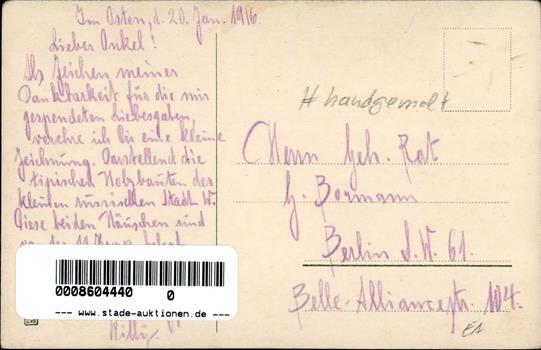 Im Osten, d. 20. Jan. 1916
Lieber Onkel!
Als Zeichen meiner
Dankbarkeit für die mir
gespendeten Liebesgaben,
verehre ich Dir eine kleine
Zeichnung. Darstellend die
typischen Holzbauten der
kleinen russischen Stadt W.
Diese beiden Häuschen sind
Willy.
# handgemalt
Herrn Geh. Rat
G. Bormann
Berlin S.W. 61.
Belle-Alliancestr. 104.
0008604440 0
--- www.stade-auktionen.de ---